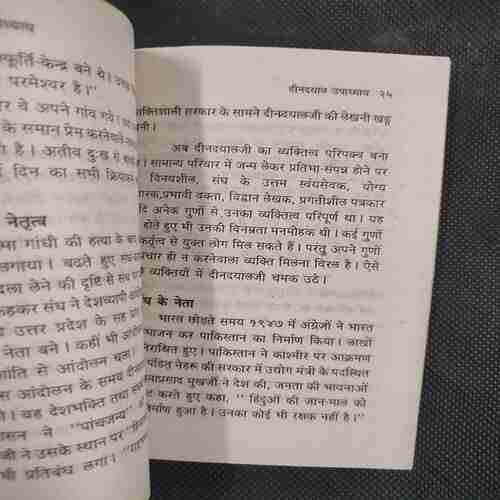 ध्याय
स्फूर्ति-केन्द्र बने थे।
परमेश्वर है।"
र वे अपने गांव गये।
के समान प्रेम करनेवाले
ी है। अतीव दुःख से
दिन का सभी क्रिया
नेतृत्व
मा गांधी की हत्या के बा
लगाया। बढते हुए
दला लेने की दृष्टि से संघ पर
कहकर संघ ने देशव्यापी
उत्तर प्रदेश के सह प्रा
नेता बने। कहीं भी आंदोलन
शांति से आंदोलन चला।
स आंदोलन के समय दीन
ी। वह देशभक्ति तथा
ासन ने "पांचजन्य"
जी ने उसके स्थान पर "हि
भी प्रतिबंध लगा।
दीनदयाल उपाध्याय २५
क्तिशाली सरकार के सामने दीनदयालजी की लेखनी खड्ग
बनी।
अब दीनदयालजी का व्यक्तित्व परिपक्व बना
। सामान्य परिवार में जन्म लेकर प्रतिभा-संपन्न होने पर
विनयशील, संघ के उत्तम स्वयंसेवक, योग्य
ारक, प्रभावी वक्ता, विद्वान लेखक, प्रगतीशील पत्रकार
दि अनेक गुणों से उनका व्यक्तित्व परिपूर्ण था। यह
होते हुए भी उनकी विनम्रता मनमोहक थी। कई गुणों
कर्तृत्व से युक्त लोग मिल सकते हैं। परंतु अपने गुणों
चार ही न करनेवाला व्यक्ति मिलना विरल है। ऐसे
व्यक्तियों में दीनदयालजी चमक उठे।
घ के नेता
भारत छोडते समय १९४७ में अंग्रेजों ने भारत
भाजन कर पाकिस्तान का निर्माण किया। लाखों
निराश्रित हुए। पाकिस्तान ने काश्मीर पर आक्रमण
पंडित नेहरू की सरकार में उद्योग मंत्री के पदस्थित
माप्रसाद मुखर्जी ने देश की, जनता की भावनाओं
ट करते हुए कहा, "हिंदुओं की जान-माल को
निर्माण हुआ है। उनका कोई भी रक्षक नहीं है।"